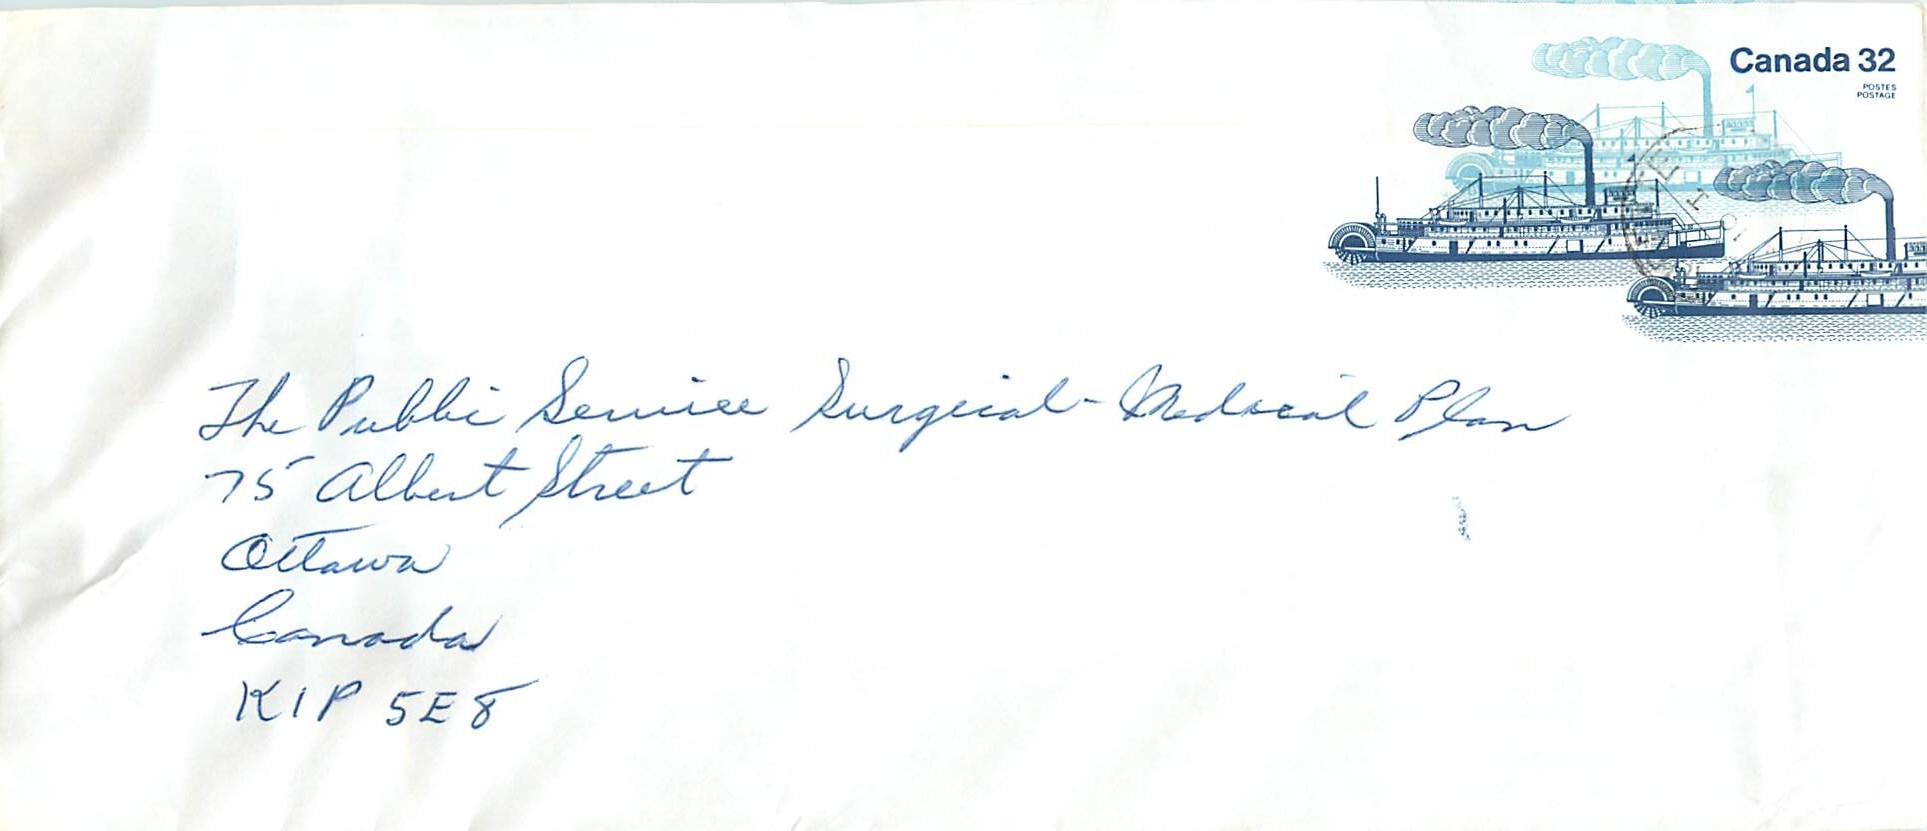 Canada 32
POSTES
POSTAGE
The Public Service Surgical-Medical Plan
75 Albert Street
Ottawa
Canada
K1P 5E8